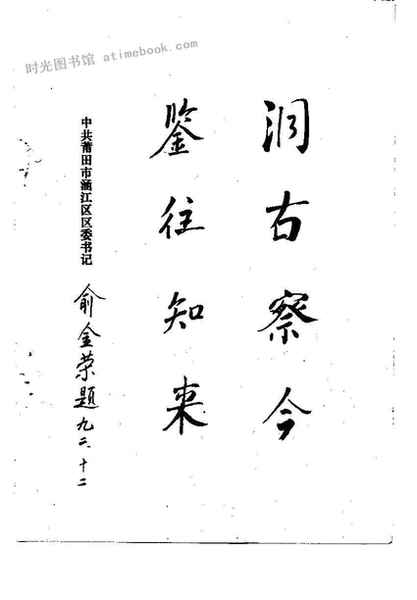 时光图书馆 atimebook.com
洞古察今
鉴往知来
中共莆田市涵江区区委书记
俞金荣题 九二、十二